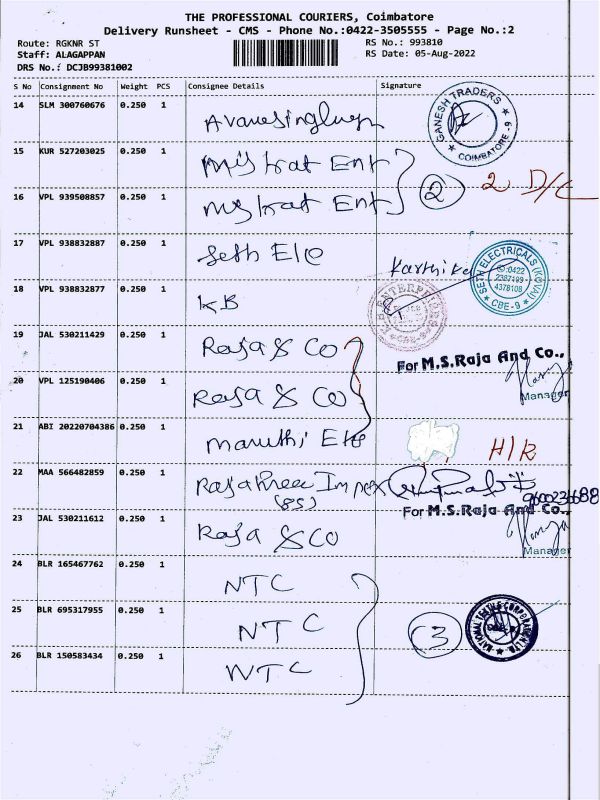 THE PROFESSIONAL COURIERS, Coimbatore
Delivery Runsheet - CMS - Phone No.:0422-3505555 - Page No.:2
Route: RGKNR ST
RS No.: 993810
Staff: ALAGAPPAN
RS Date: 05-Aug-2022
DRS No.: DCJB99381002
S No Consignment No Weight PCS Consignee Details Signature
14 SLM 300760676 0.250 1
GANESH TRADERS COIMBATORE - 9
15 KUR 527203025 0.250 1 Ent
16 VPL 939508857 0.250 1 Ent 2 2 D/C
17 VPL 938832887 0.250 1 Seth Ele Karthika
SETH ELECTRICALS (KOVAI) CBE-9
18 VPL 938832877 0.250 1 KB
ENTERPRISES
19 JAL 530211429 0.250 1 Raja & Co
For M.S.Raja And Co.,
20 VPL 125190406 0.250 1 Raja & Co
Manager
21 ABI 20220704386 0.250 1 Maruthi Ele H/R
22 MAA 566482859 0.250 1 Rajashree Impex
(85)
For M.S.Raja And Co.,
23 JAL 530211612 0.250 1 Raja & Co
Manager
24 BLR 165467762 0.250 1 NTC
25 BLR 695317955 0.250 1 NTC 3
NATIONAL TEXTILE CORPORATION LTD
26 BLR 150583434 0.250 1 NTC